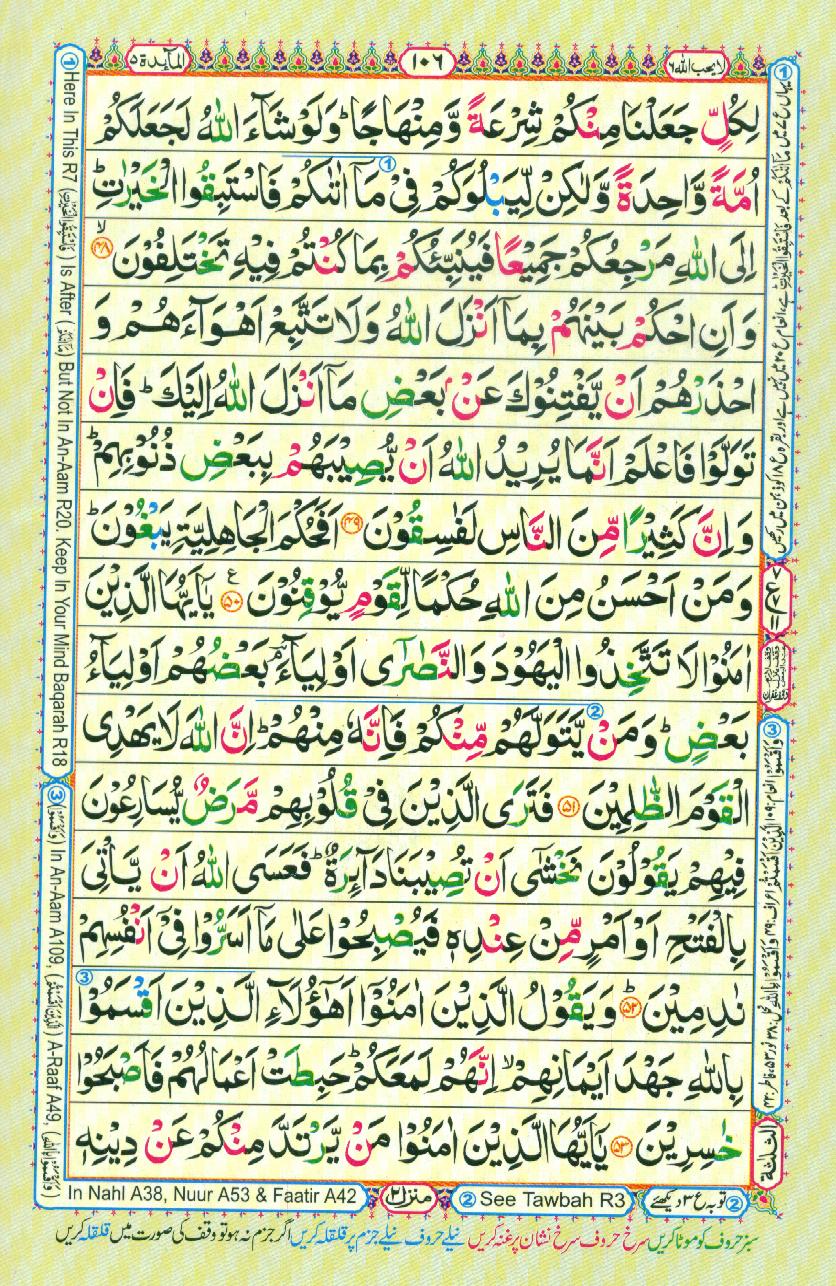 المآيدة ٥
١٠٦
لا يحب الله ٦
لِكُلٍّ جَعَلْنَا مِنْكُمْ شِرْعَةً وَّمِنْهَاجًا ؕ وَلَوْ شَآءَ اللّٰهُ لَجَعَلَكُمْ
اُمَّةً وَّاحِدَةً وَّلٰكِنْ لِّيَبْلُوَكُمْ فِىْ مَاۤ اٰتٰٮكُمْ فَاسْتَبِقُوا الْخَيْرٰتِ ؕ
اِلَى اللّٰهِ مَرْجِعُكُمْ جَمِيْعًا فَيُنَبِّئُكُمْ بِمَا كُنْتُمْ فِيْهِ تَخْتَلِفُوْنَ ۙ ﴿۴۸﴾
وَاَنِ احْكُمْ بَيْنَهُمْ بِمَاۤ اَنْزَلَ اللّٰهُ وَلَا تَتَّبِعْ اَهْوَآءَهُمْ وَ
احْذَرْهُمْ اَنْ يَّفْتِنُوْكَ عَنْۢ بَعْضِ مَاۤ اَنْزَلَ اللّٰهُ اِلَيْكَ ؕ فَاِنْ
تَوَلَّوْا فَاعْلَمْ اَنَّمَا يُرِيْدُ اللّٰهُ اَنْ يُّصِيْبَهُمْ بِبَعْضِ ذُنُوْبِهِمْ ؕ
وَاِنَّ كَثِيْرًا مِّنَ النَّاسِ لَفٰسِقُوْنَ ﴿۴۹﴾ اَفَحُكْمَ الْجَاهِلِيَّةِ يَبْغُوْنَ ؕ
وَمَنْ اَحْسَنُ مِنَ اللّٰهِ حُكْمًا لِّقَوْمٍ يُّوْقِنُوْنَ ﴿۵۰﴾ ع يٰۤاَيُّهَا الَّذِيْنَ
اٰمَنُوْا لَا تَتَّخِذُوا الْيَهُوْدَ وَالنَّصٰرٰۤى اَوْلِيَآءَ ؔۘ بَعْضُهُمْ اَوْلِيَآءُ
بَعْضٍ ؕ وَمَنْ يَّتَوَلَّهُمْ مِّنْكُمْ فَاِنَّهٗ مِنْهُمْ ؕ اِنَّ اللّٰهَ لَا يَهْدِى
الْقَوْمَ الظّٰلِمِيْنَ ﴿۵۱﴾ فَتَرَى الَّذِيْنَ فِىْ قُلُوْبِهِمْ مَّرَضٌ يُّسَارِعُوْنَ
فِيْهِمْ يَقُوْلُوْنَ نَخْشٰٓى اَنْ تُصِيْبَنَا دَآئِرَةٌ ؕ فَعَسَى اللّٰهُ اَنْ يَّاْتِىَ
بِالْفَتْحِ اَوْ اَمْرٍ مِّنْ عِنْدِهٖ فَيُصْبِحُوْا عَلٰى مَاۤ اَسَرُّوْا فِىْۤ اَنْفُسِهِمْ
نٰدِمِيْنَ ؕ ﴿۵۲﴾ وَيَقُوْلُ الَّذِيْنَ اٰمَنُوْۤا اَهٰٓؤُلَآءِ الَّذِيْنَ اَقْسَمُوْا
بِاللّٰهِ جَهْدَ اَيْمَانِهِمْ ۙ اِنَّهُمْ لَمَعَكُمْ ؕ حَبِطَتْ اَعْمَالُهُمْ فَاَصْبَحُوْا
خٰسِرِيْنَ ﴿۵۳﴾ يٰۤاَيُّهَا الَّذِيْنَ اٰمَنُوْا مَنْ يَّرْتَدَّ مِنْكُمْ عَنْ دِيْنِهٖ
① Here In This R7 (فَاسْتَبِقُوا الْخَيْرٰتِ) Is After (مَاۤ اٰتٰٮكُمْ) But Not In An-Aam R20. Keep In Your Mind Baqarah R18
③ (وَاَقْسَمُوْا) In An-Aam A109, (الَّذِيْنَ اَقْسَمْتُمْ) A-Raaf A49, (وَاَقْسَمُوْا بِاللّٰهِ)
الثلثة
In Nahl A38, Nuur A53 & Faatir A42
منزل ٢
② See Tawbah R3
② توبہ ع ٣ دیکھئے
سبز حروف کو موٹا کریں سرخ حروف سرخ نشان پر غنہ کریں نیلے حروف نیلے جزم پر قلقلہ کریں اگر جزم نہ ہو تو وقف کی صورت میں قلقلہ کریں